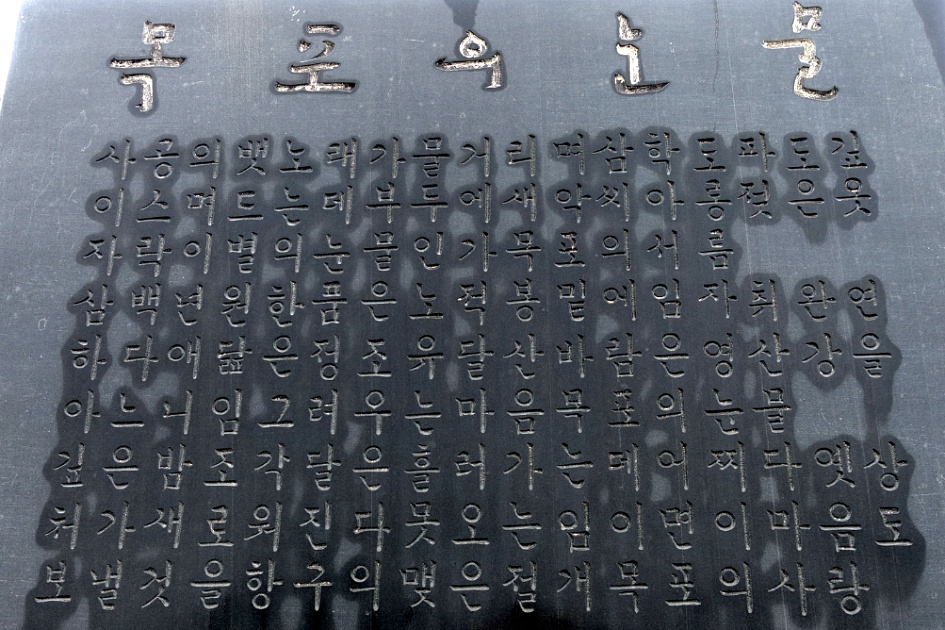 목포의눈물
사공의뱃노래가물거리며삼학도파도깊
이스며드는데부두에새악씨아롱젖은옷
자락이별의눈물인가목포의서름
삼백년원한품은노적봉밑에임자취완연
하다애닲은정조유달산바람은영산강을
아느니임그려우는마음목포의눈물
깊은밤조각달은흘러가는데어찌다옛상
처가새로워진다못오는임이면이마음도
보낼것을항구의맺은절개목포의사랑